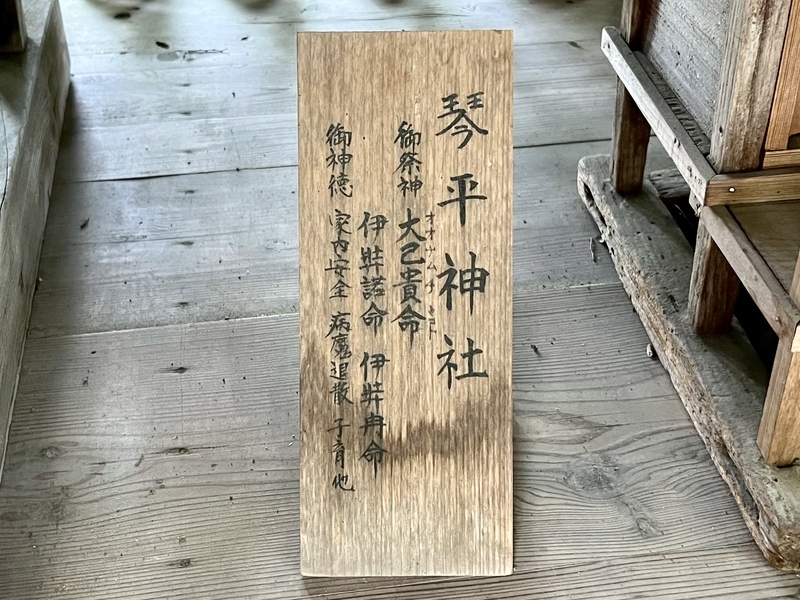 琴平神社
御祭神 大己貴命
オオナムチノミコト
伊弉諾命 伊弉冉命
御神徳 家内安全 病魔退散 子育他